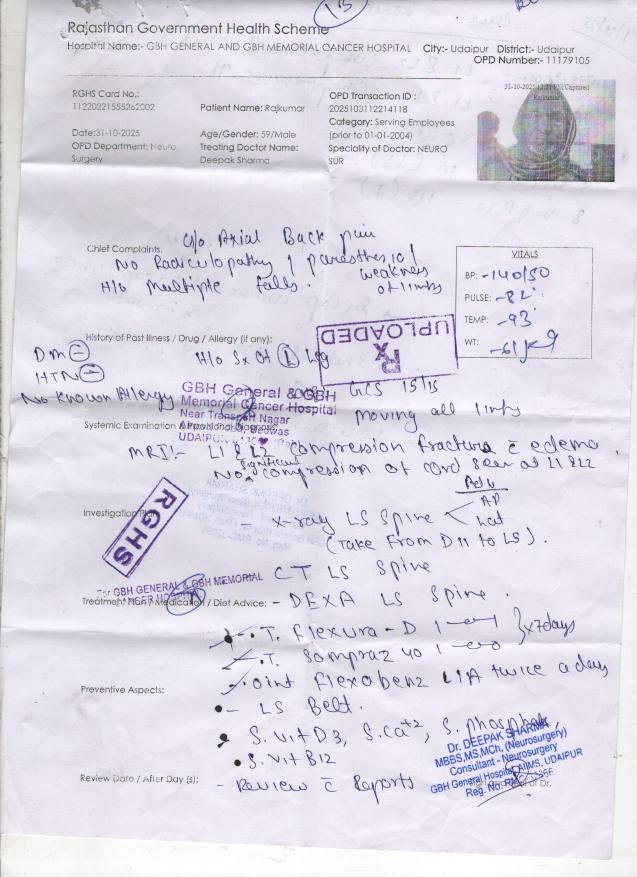 Rajasthan Government Health Scheme
Hospital Name:- GBH GENERAL AND GBH MEMORIAL CANCER HOSPITAL City:- Udaipur District:- Udaipur
OPD Number:- 11179105
31-10-2025 12:21 PM Captured
Rajkumar
RGHS Card No.:
11220221555262002
Patient Name: Rajkumar
OPD Transaction ID :
2025103112214118
Category: Serving Employees
(prior to 01-01-2004)
Date:31-10-2025
Age/Gender: 59/Male
OPD Department: Neuro
Surgery
Treating Doctor Name:
Deepak Sharma
Speciality of Doctor: NEURO
SUR
Chief Complaints:
c/o Axial Back pain
No Radiculopathy / paresthesia /
weakness
of limbs
H/o Multiple falls.
VITALS
BP: -140/80
PULSE: -82
TEMP: -93
WT: -61 kg
UPLOADED
Rx
History of Past Illness / Drug / Allergy (if any):
DM (-)
HTN (-)
No Known Allergy
H/o Sx of (L) Leg
GCS 15/15
moving all limbs
GBH General & GBH
Memorial Cancer Hospital
Near Transport Nagar
Bedwas
UDAIPUR
Systemic Examination & Provisional Diagnosis:
MRI:- L1 & L2 compression fracture c̄ edema.
No significant compression of cord seen at L1 & L2
RGHS
Investigation Plan:
Adv
- X-ray LS Spine < AP
Lat
(Take from D11 to LS).
CT LS Spine
For GBH GENERAL & GBH MEMORIAL
CANCER HOSPITAL
Treatment Plan / Medication / Diet Advice: - DEXA LS Spine.
T. Flexura-D 1—0—1
T. Sompraz 40 1—0—0
} x 7 days
oint Flexabenz L/A twice a day
Preventive Aspects:
- LS Belt.
S. Vit D3, S. Ca+2, S. phosphate,
S. Vit B12
Dr. DEEPAK SHARMA
MBBS,MS,MCh, (Neurosurgery)
Consultant - Neurosurgery
GBH General Hospital, AIIMS, UDAIPUR
Reg. No.
of Dr.
Review Date / After Day (s):
- Review c̄ Reports